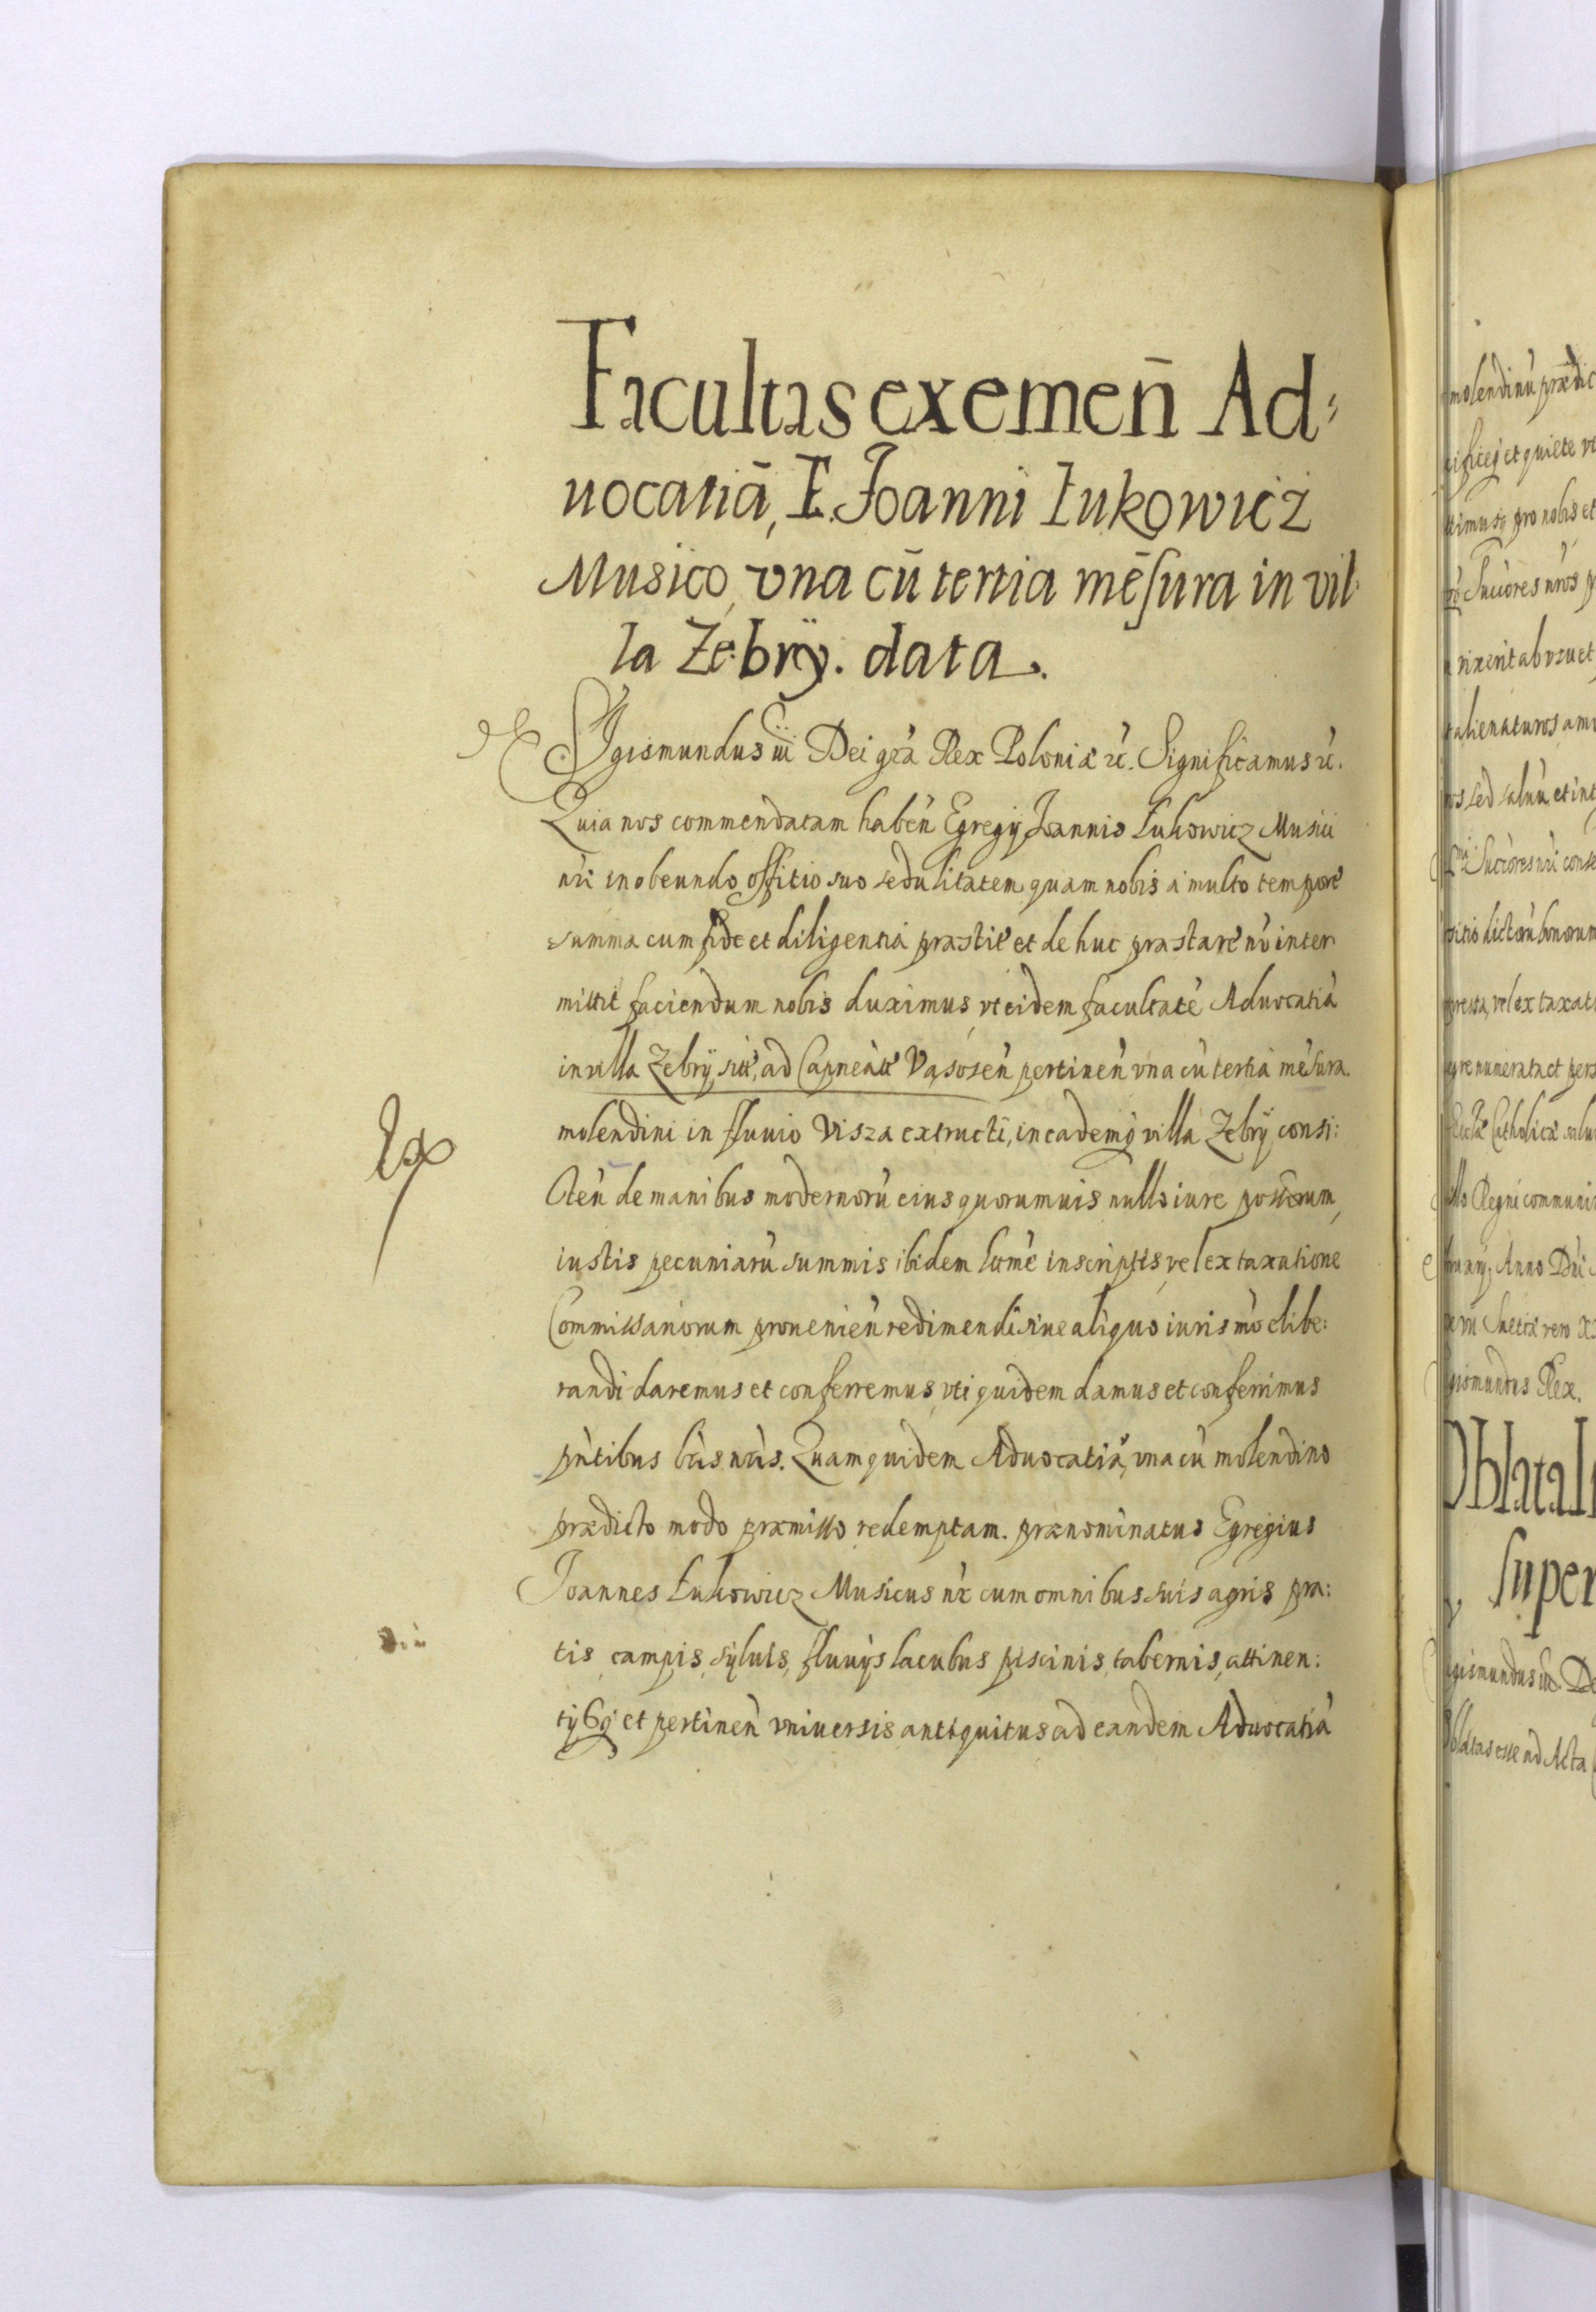 Facultas exemeñ Ad:
uocatiā, E. Joanni Łukowicż
Musico, vna cū tertia mēsura in vil:
la Zebrÿ. data.
SIgismundus iii Dei gr̀a Rex Poloniæ rc̀. Significamus rc̀.
Quia nos commendatam habeǹ Egregÿ Joannis Łukowicz Musici
nr̀i in obeundo offitio suo sedulitatem quam nobis a multo tempore
summa cum fide et diligentia præstit et de huc præstare nò inter
mittit faciendum nobis duximus, vt eidem facultatè Aduocatià
in villa Zebrÿ sitt, ad Capneàtt Vąsoseǹ pertineǹ vna cù tertia mèsura
molendini in fluuio Visza extructi, in eademq; villa Zebrÿ consi:
steǹ de manibus modernorù eius quorumuis nullo iure possorum,
iustis pecuniarù summis ibidem ltmè inscriptis, vel ex taxatione
Commissariorum prouenieǹ redimendi siue aliquo iuris mò elibe:
randi daremus et conferremus, vti quidem damus et conferimus
pǹtibus lr̀is nr̀is. Quam quidem Aduocatià, vna cù molendino
prædicto modo præmisso redemptam. prænominatus Egregius
Joannes Łukowicz Musicus nr̀ cum omnibus suis agris pra:
tis campis, syluis, fluuÿs lacubus piscinis, tabernis, attinen:
tÿsq; et pertineǹ vniuersis antiquitus ad eandem Aduocatià
molendinù prædic
Succores nr̀os p
alienaturos am
os sed saluù et int
dictorù bonorum
vel ex taxat
Catholicæ salu
Regni communi
Anno Dǹi
Suetiæ vero
gismundus Rex.
Oblatal
super
gismundus iii. De
Oblatas esse ad Acta